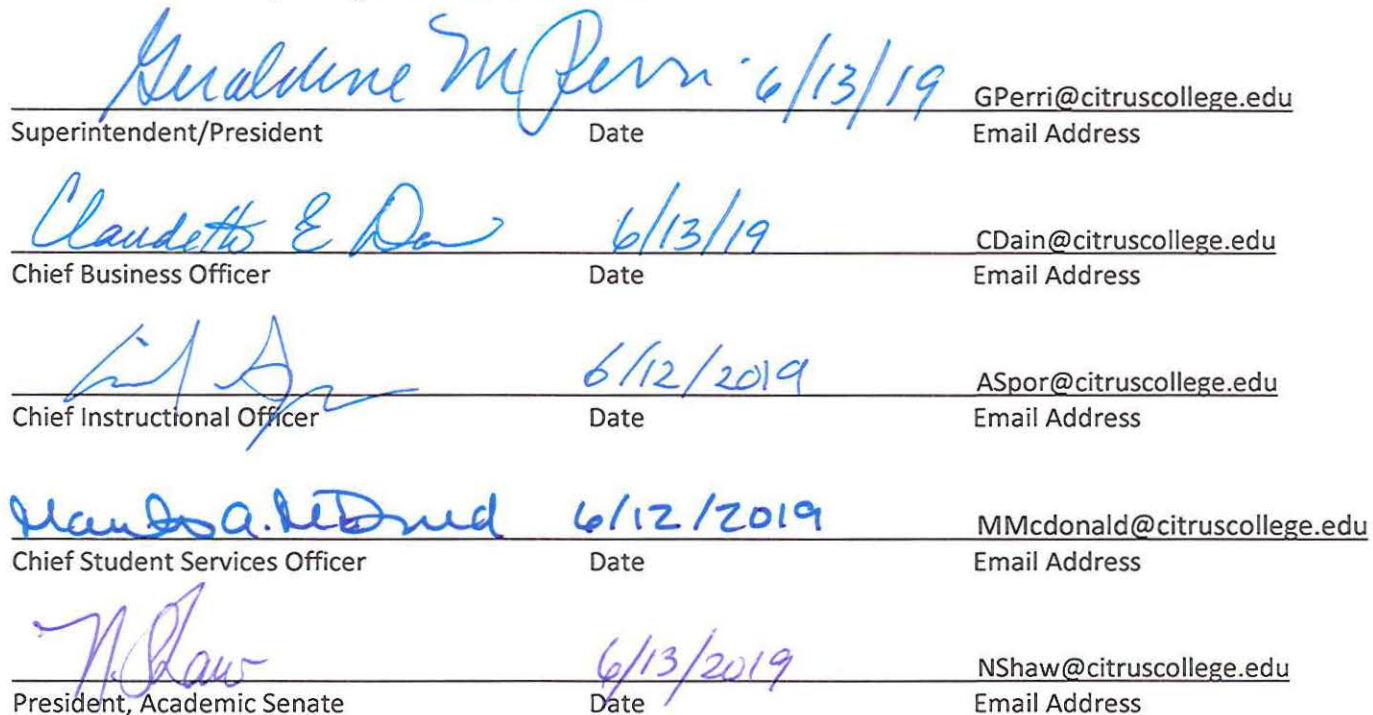 Geraldine M Perri 6/13/19 GPerri@citruscollege.edu
Superintendent/President Date Email Address
Claudette E Da 6/13/19 CDain@citruscollege.edu
Chief Business Officer Date Email Address
6/12/2019 ASpor@citruscollege.edu
Chief Instructional Officer Date Email Address
6/12/2019 MMcdonald@citruscollege.edu
Chief Student Services Officer Date Email Address
N. Shaw 6/13/2019 NShaw@citruscollege.edu
President, Academic Senate Date Email Address